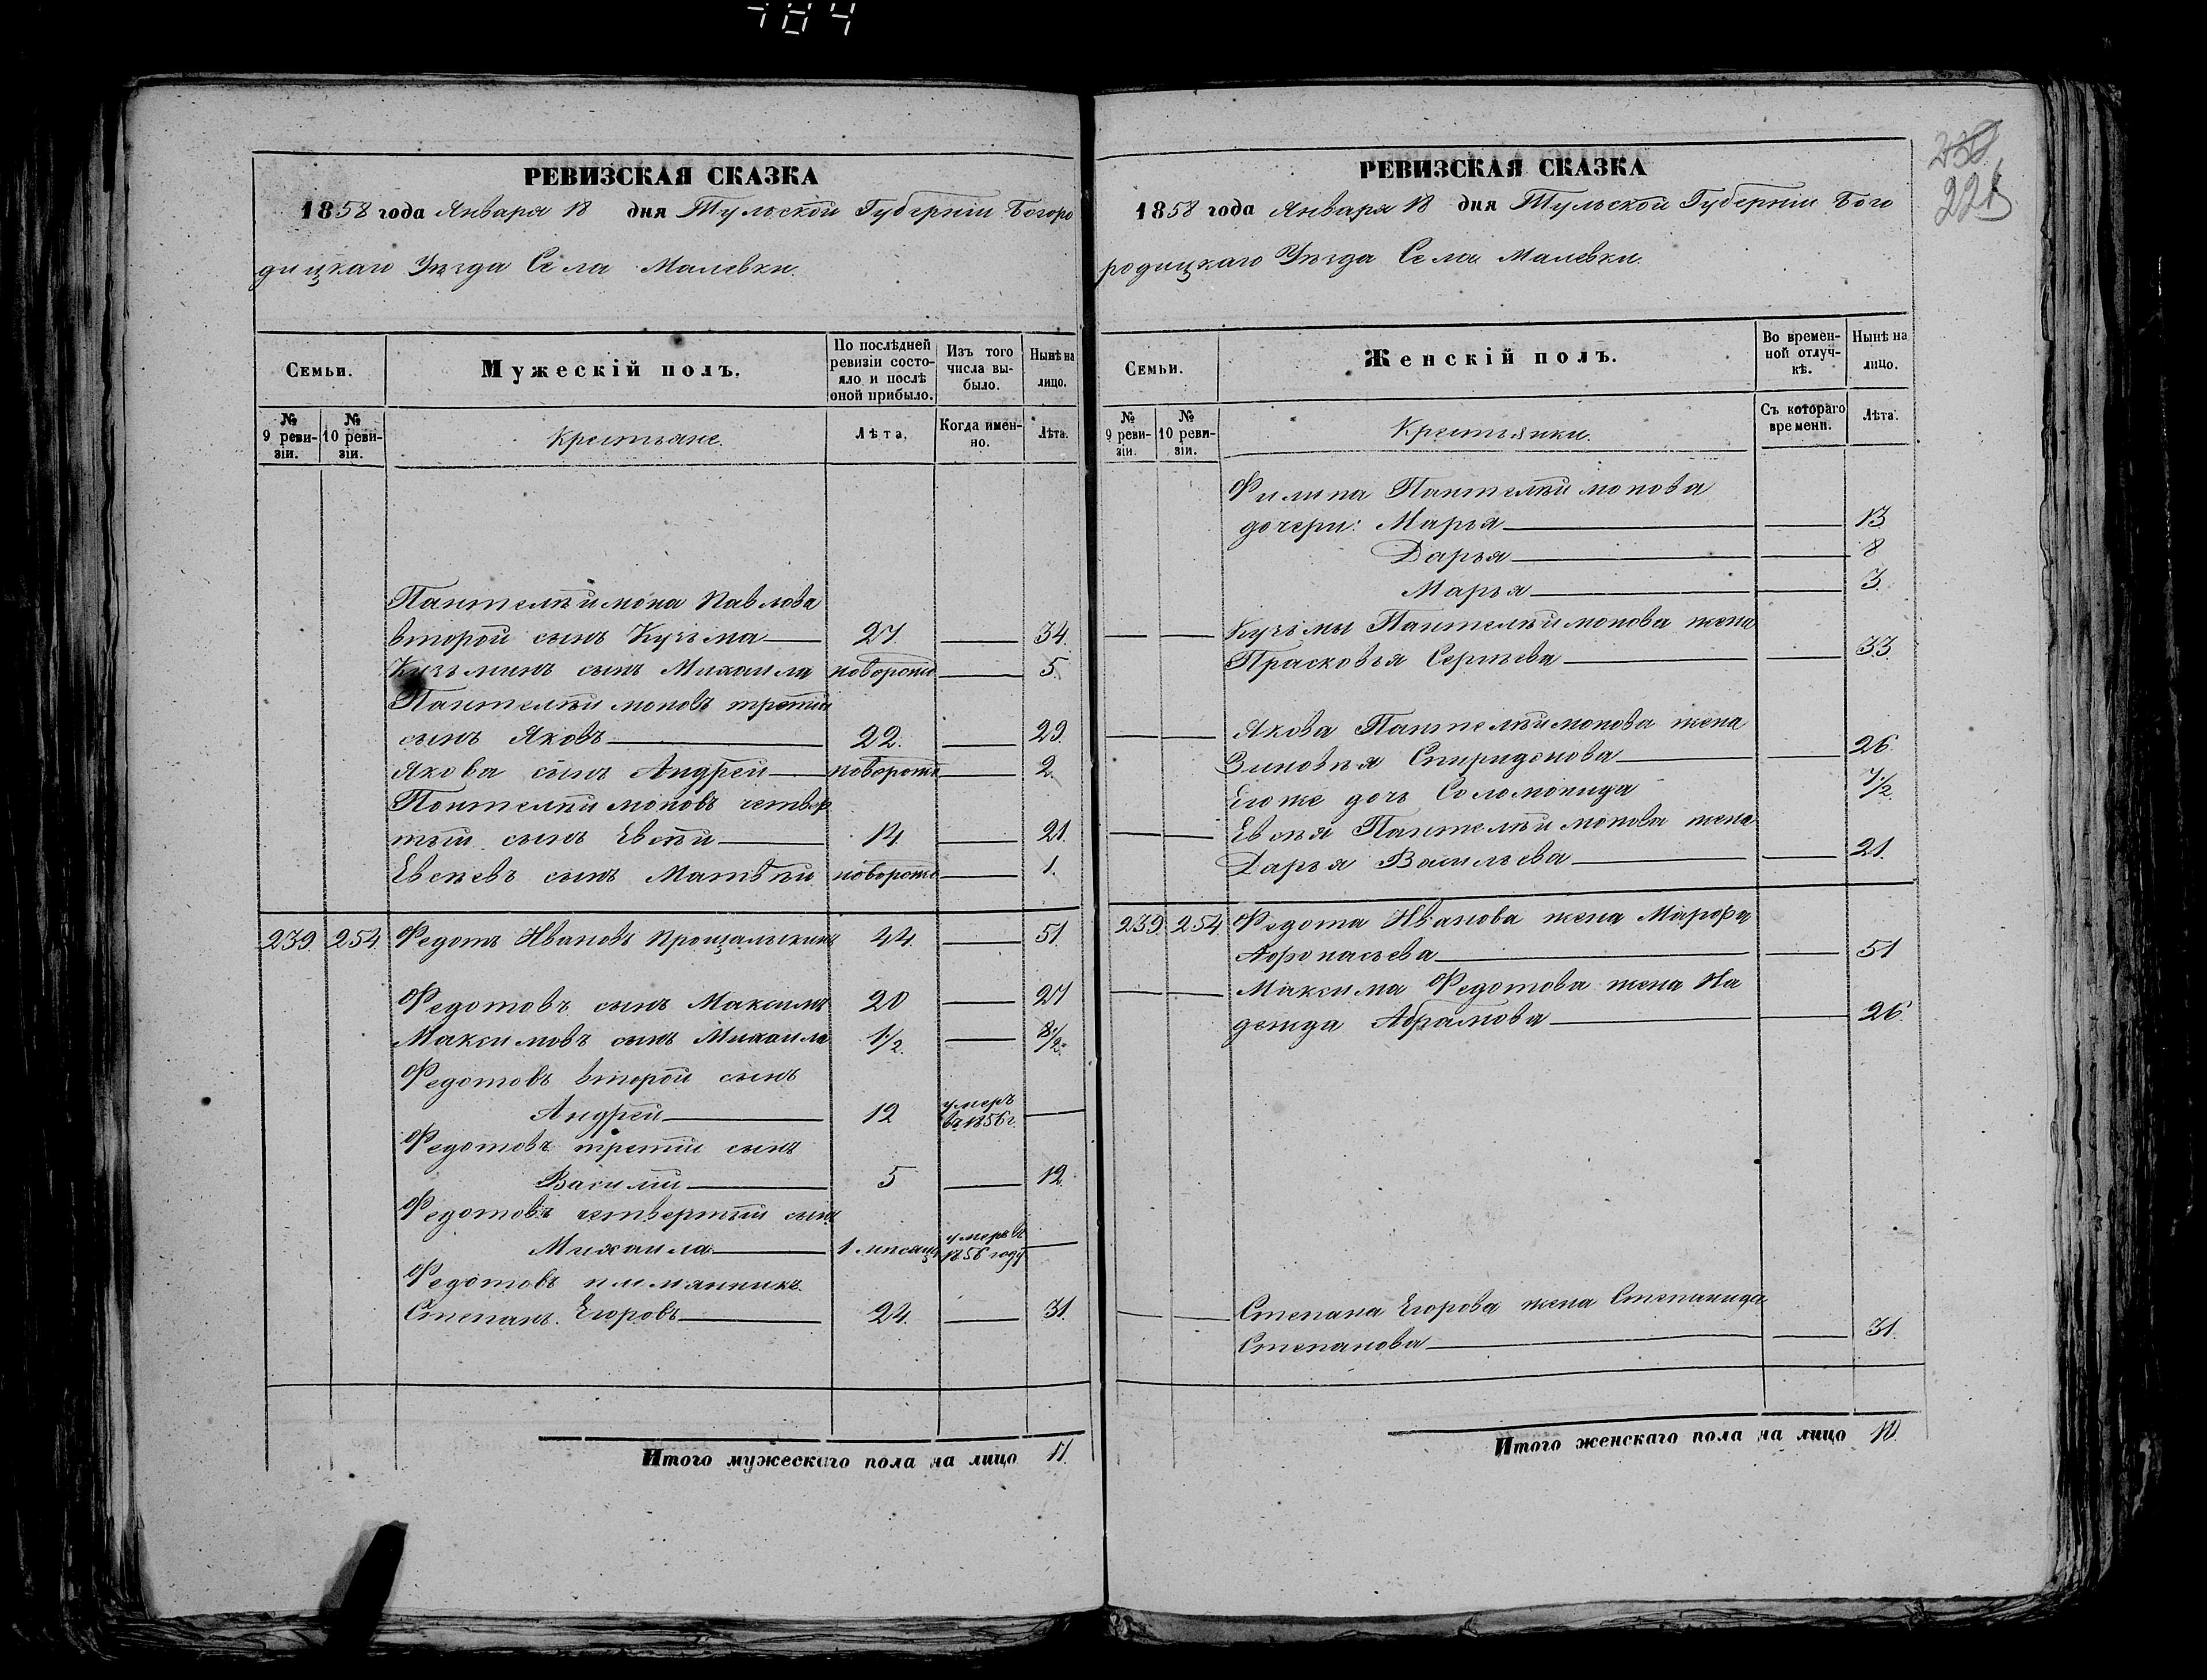 784
РЕВИЗСКАЯ СКАЗКА
1858 года Января 18 дня Тульской Губерніи Богоро
дицкаго Уѣзда Села Малевки.
Семьи.
Мужескій полъ.
По послѣдней ревизіи состояло и послѣ оной прибыло.
Изъ того числа выбыло.
Нынѣ на лицо.
№ 9 ревизіи.
№ 10 ревизіи.
Крестьяне.
Лѣта.
Когда именно.
Лѣта.
Пантелѣимона Павлова
второй сынъ Кузьма 27 34.
Кузьминъ сынъ Михаила новорожд 5.
Пантелѣимоновъ третій
сынъ Яковъ 22. 29.
Якова сынъ Андрей новорожд 2.
Пантелѣимоновъ четвер
тый сынъ Евсѣй 14. 21.
Евсѣевъ сынъ Матвѣй новорожд 1.
239. 254. Федотъ Ивановъ 44. 51.
Федотовъ сынъ Максимъ 20 27
Максимовъ сынъ Михаила 1/2. 8 1/2.
Федотовъ второй сынъ
Андрей 12 умеръ въ 1856 г.
Федотовъ третій сынъ
Василій 5 12.
Федотовъ четвертый сынъ
Михаила 1 мѣсяцъ умеръ въ 1856 году
Федотовъ племянникъ
Степанъ Егоровъ 24. 31.
Итого мужескаго пола на лицо 11.
221
РЕВИЗСКАЯ СКАЗКА
1858 года Января 18 дня Тульской Губерніи Бого
родицкаго Уѣзда Села Малевки.
Семьи.
Женскій полъ.
Во временной отлучкѣ.
Нынѣ на лицо.
№ 9 ревизіи.
№ 10 ревизіи.
Крестьянки.
Съ котораго времени.
Лѣта.
Филипа Пантелѣимонова
дочери: Марья 13.
Дарья 8
Марья 3.
Кузьмы Пантелѣимонова жена
Прасковья Сергѣева 33.
Якова Пантелѣимонова жена
Зиновья Спиридонова 26.
Егоже дочь Соломонида 7 1/2.
Евсѣя Пантелѣимонова жена
Дарья Васильева 21.
239. 254. Федота Иванова жена Марфа
Афонасьева 51
Максима Федотова жена На
дежда Абрамова 26.
Степана Егорова жена Степанида
Степанова 31.
Итого женскаго пола на лицо 10.